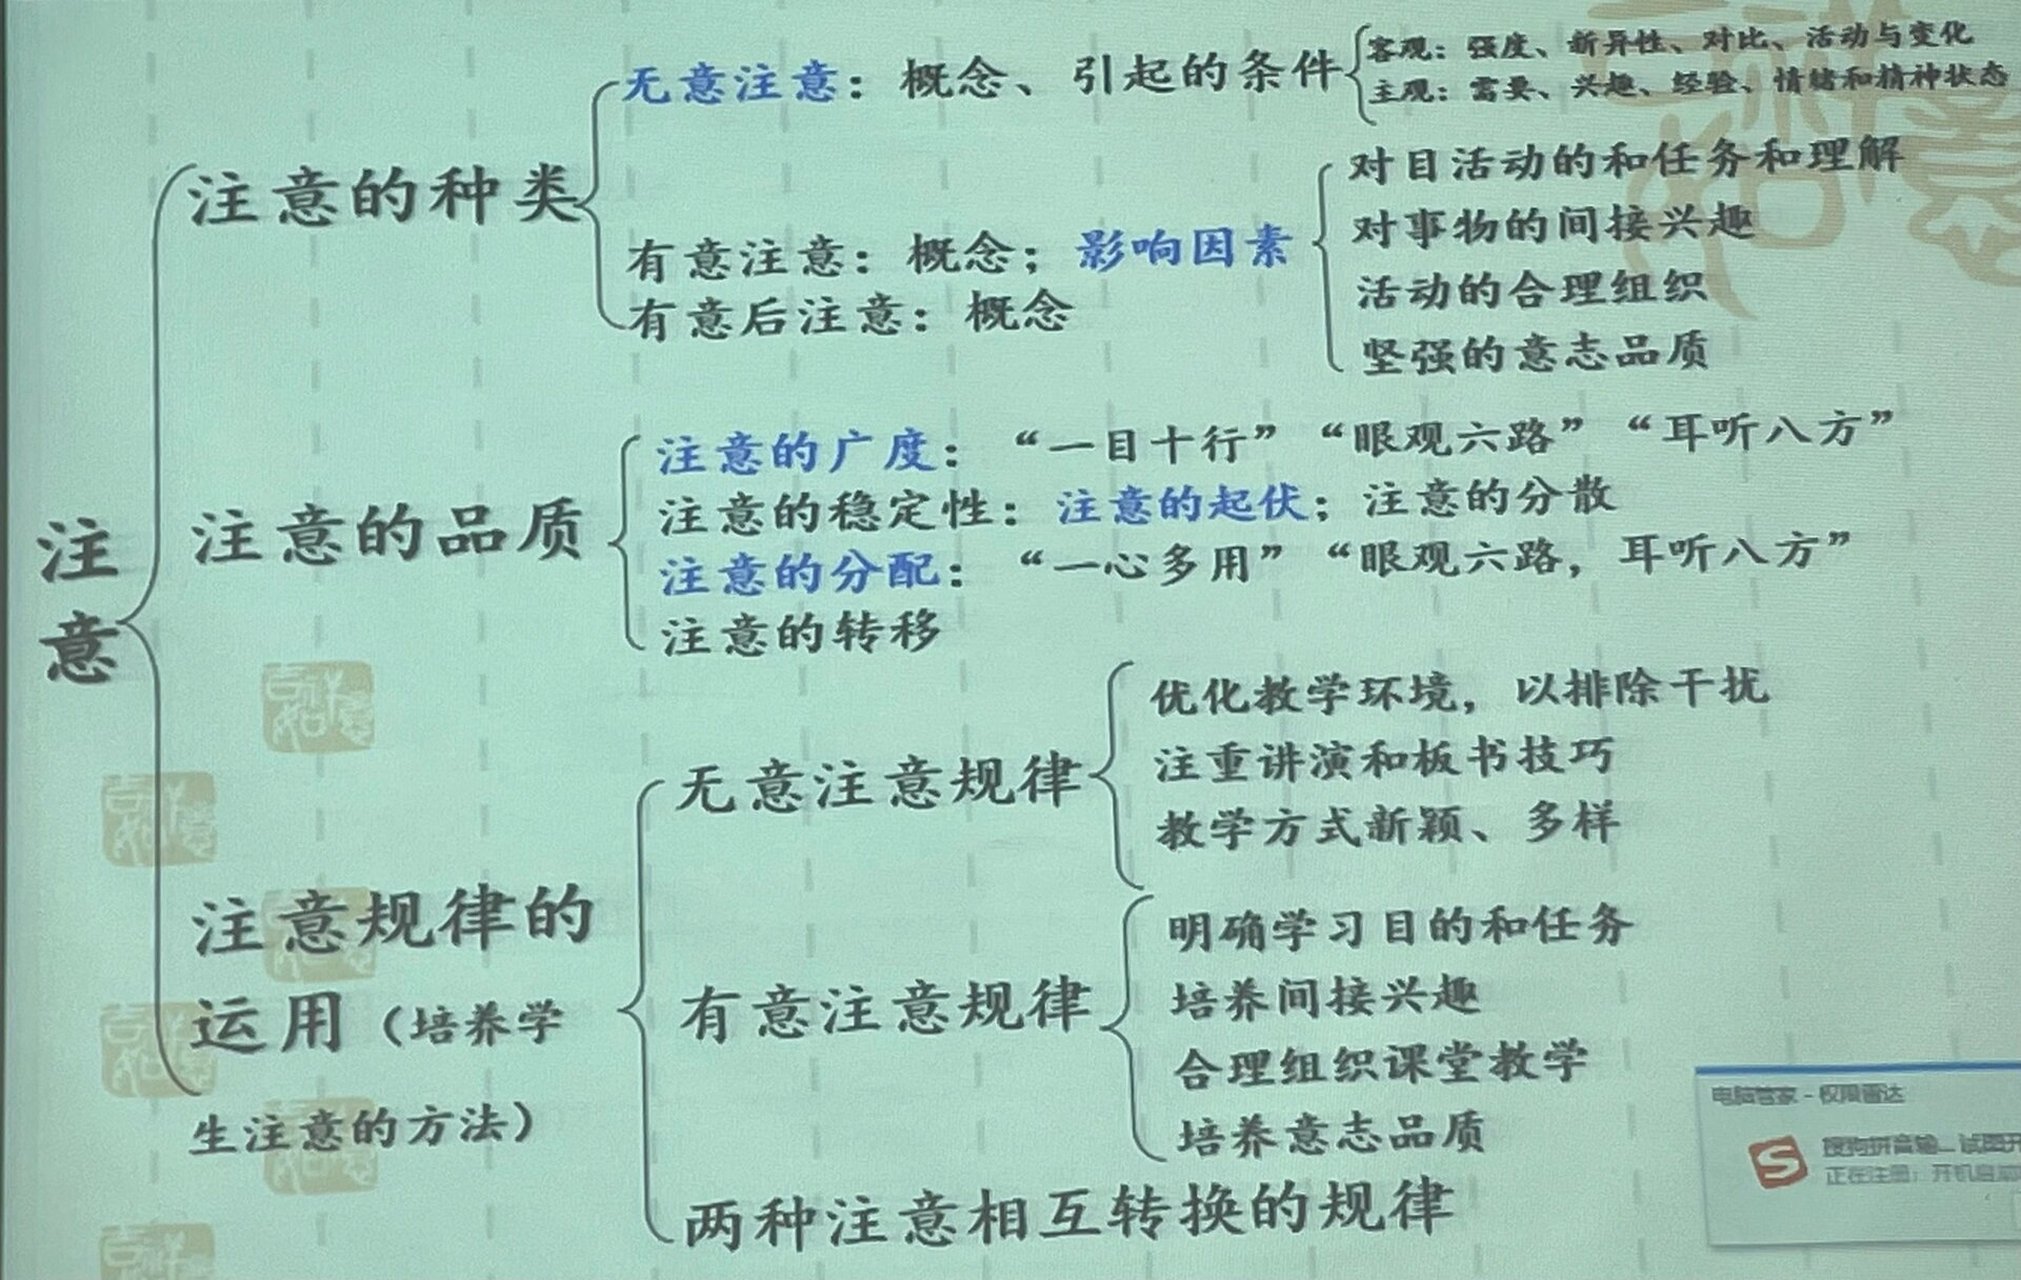 注意
注意的种类
无意注意：概念、引起的条件
客观：强度、新异性、对比、活动与变化
主观：需要、兴趣、经验、情绪和精神状态
有意注意：概念；影响因素
对目活动的和任务和理解
对事物的间接兴趣
活动的合理组织
坚强的意志品质
有意后注意：概念
注意的品质
注意的广度：“一目十行”“眼观六路”“耳听八方”
注意的稳定性：注意的起伏；注意的分散
注意的分配：“一心多用”“眼观六路，耳听八方”
注意的转移
注意规律的
运用（培养学
生注意的方法）
无意注意规律
优化教学环境，以排除干扰
注重讲演和板书技巧
教学方式新颖、多样
有意注意规律
明确学习目的和任务
培养间接兴趣
合理组织课堂教学
培养意志品质
两种注意相互转换的规律
电脑管家 - 权限雷达